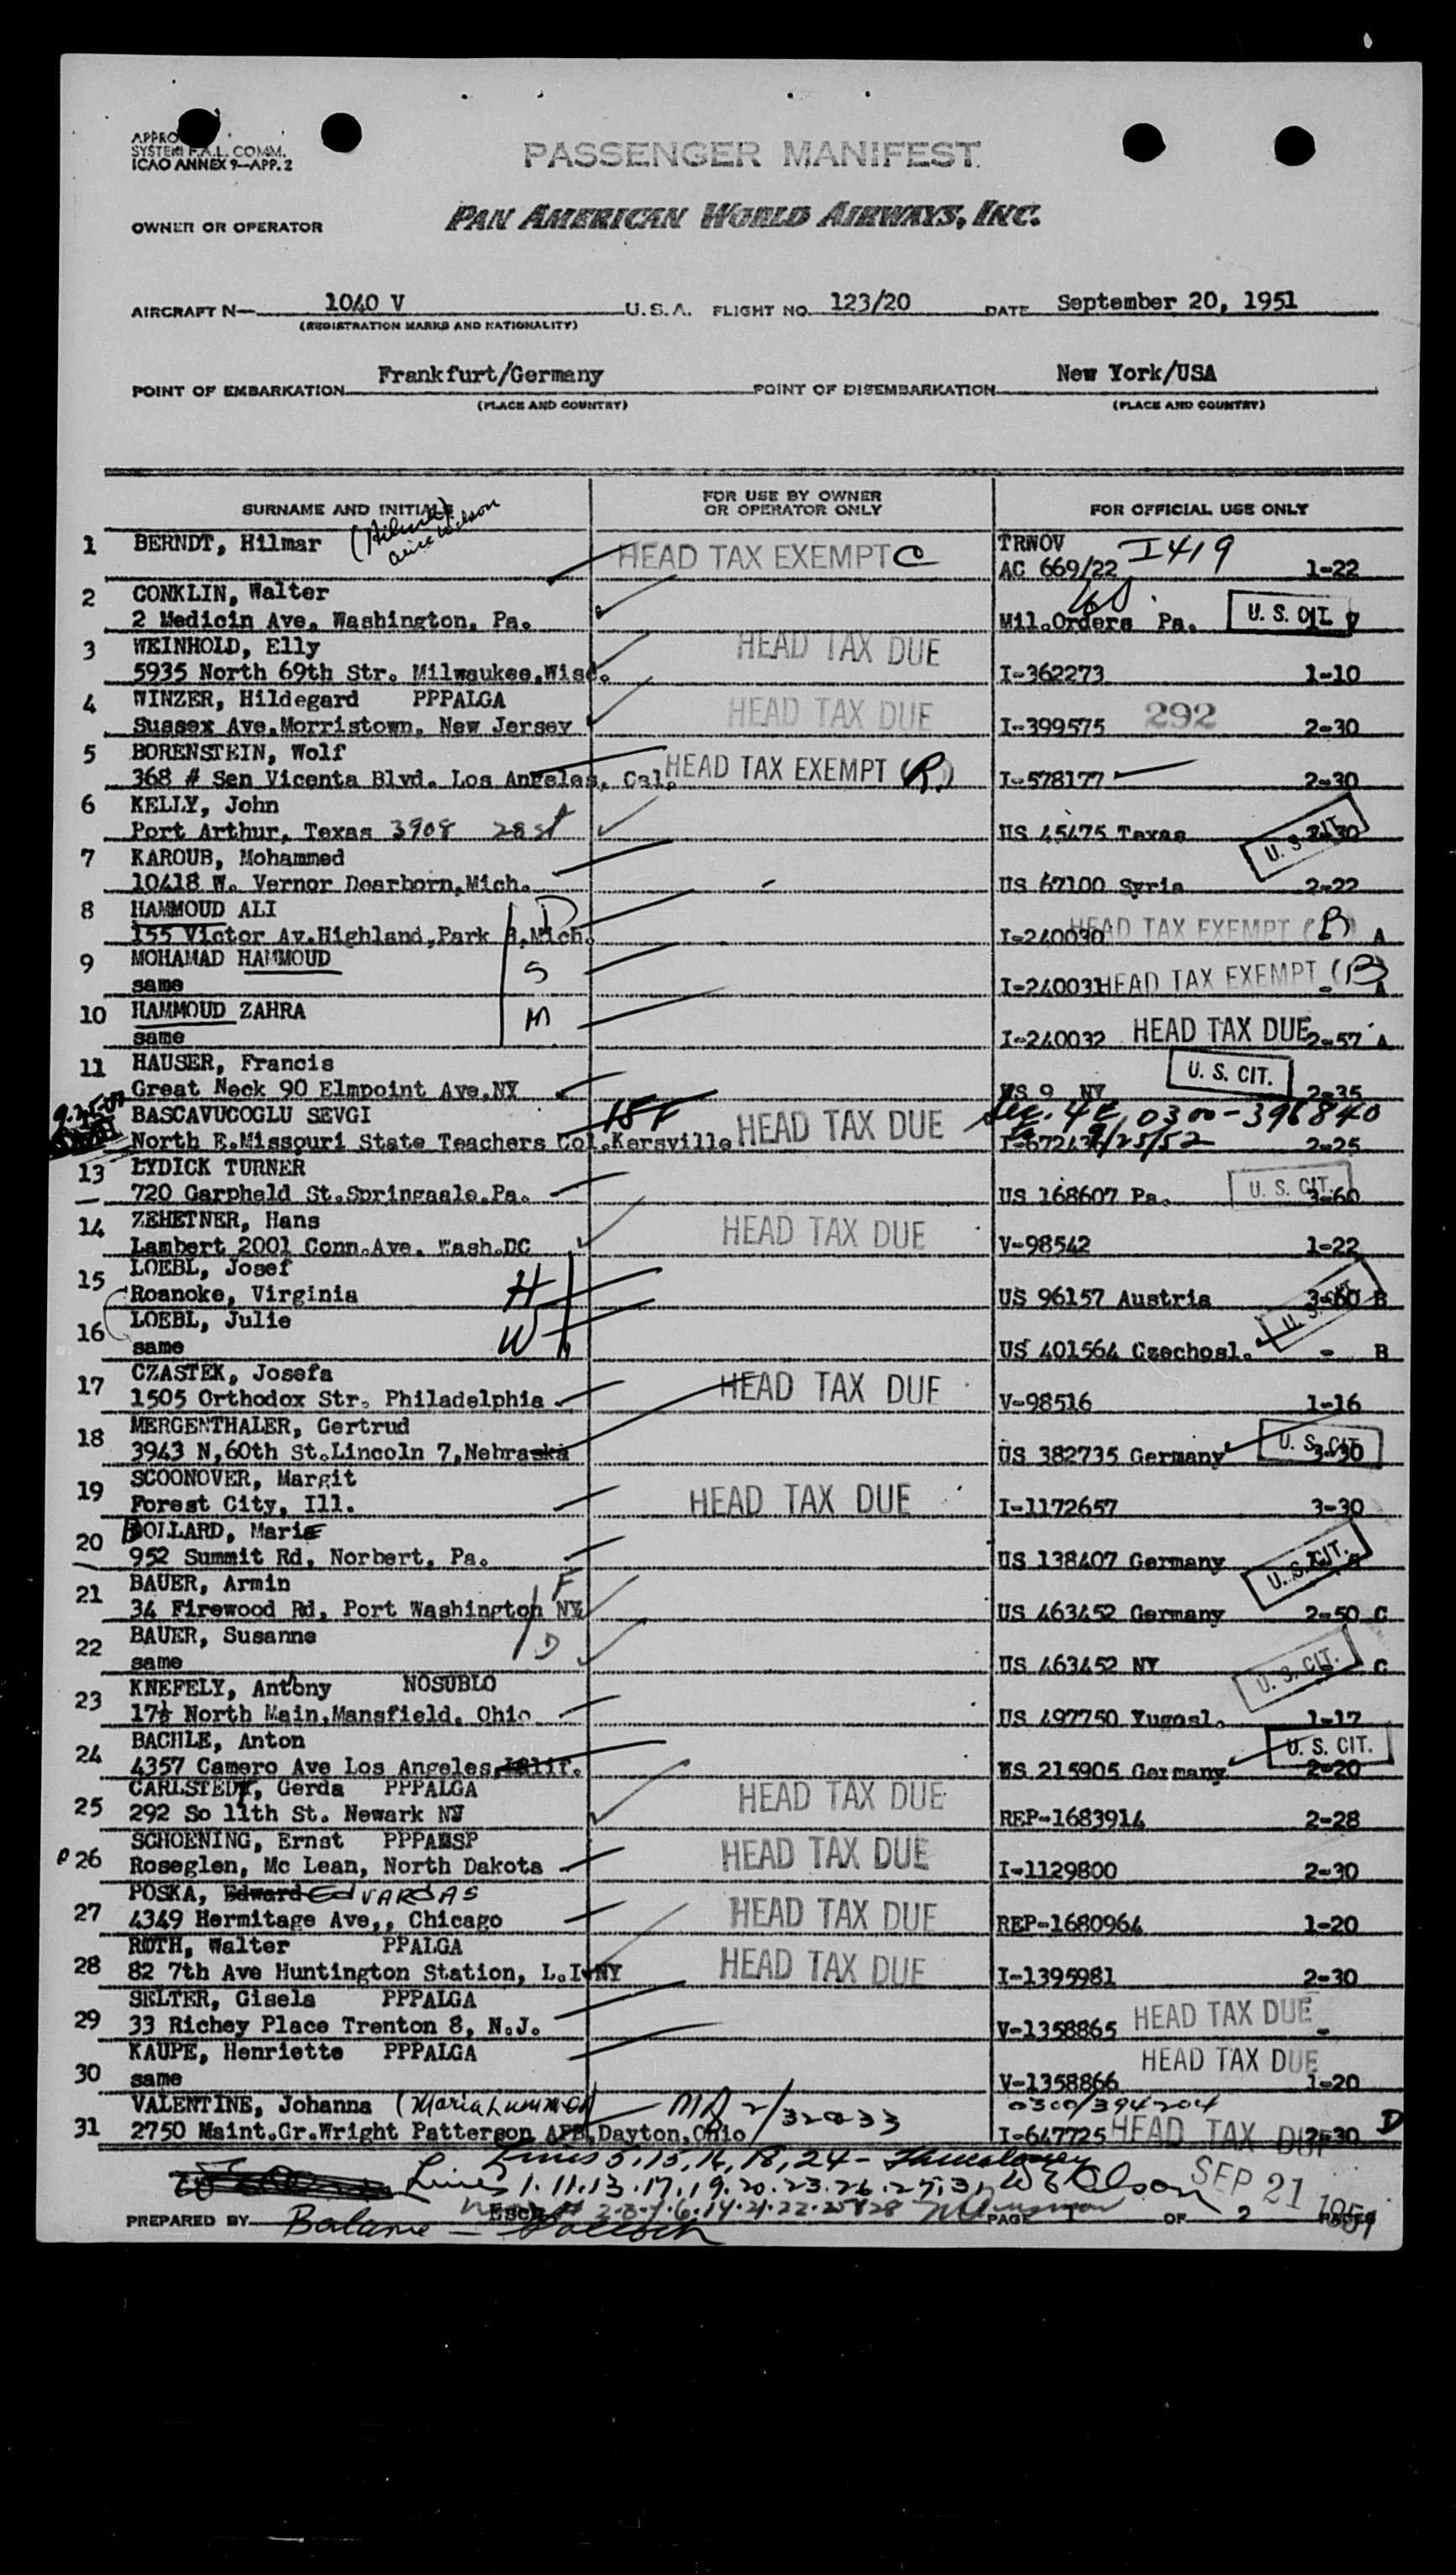 APPRO
SYSTEM F.A.L. COMM.
ICAO ANNEX 9—APP. 2
PASSENGER MANIFEST
OWNER OR OPERATOR PAN AMERICAN WORLD AIRWAYS, INC.
AIRCRAFT N— 1040 V U.S.A. FLIGHT NO. 123/20 DATE September 20, 1951
(REGISTRATION MARKS AND NATIONALITY)
POINT OF EMBARKATION Frankfurt/Germany POINT OF DISEMBARKATION New York/USA
(PLACE AND COUNTRY) (PLACE AND COUNTRY)
SURNAME AND INITIALS FOR USE BY OWNER OR OPERATOR ONLY FOR OFFICIAL USE ONLY
1 BERNDT, Hilmar HEAD TAX EXEMPT C TRNOV I419
AC 669/22 1-22
2 CONKLIN, Walter
2 Medicin Ave. Washington. Pa. Mil.Orders Pa. U. S. CIT.
3 WEINHOLD, Elly HEAD TAX DUE
5935 North 69th Str. Milwaukee,Wisc. I-362273 1-10
4 WINZER, Hildegard PPPALGA HEAD TAX DUE
Sussex Ave.Morristown. New Jersey I-399575 292 2-30
5 BORENSTEIN, Wolf HEAD TAX EXEMPT (R)
368 # Sen Vicenta Blvd. Los Angeles, Cal. I-578177 2-30
6 KELLY, John
Port Arthur, Texas 3908 28 st US 45475 Texas U. S. CIT. 2-30
7 KAROUB, Mohammed
10418 W. Vernor Dearborn,Mich. US 67100 Syria 2-22
8 HAMMOUD ALI D
155 Victor Av.Highland,Park 3,Mich. I-240030 HEAD TAX EXEMPT (B) A
9 MOHAMAD HAMMOUD S
same I-240031 HEAD TAX EXEMPT (B) - A
10 HAMMOUD ZAHRA M
same I-240032 HEAD TAX DUE 2-57 A
11 HAUSER, Francis
Great Neck 90 Elmpoint Ave.NY US 9 NY U. S. CIT. 2-35
BASCAVUCOGLU SEVGI HEAD TAX DUE 0300-396840
North E.Missouri State Teachers Col.Kersville 9/25/52 2-25
13 LYDICK TURNER
720 Garpheld St.Springaale.Pa. US 168607 Pa. U. S. CIT. 3-60
14 ZEHETNER, Hans HEAD TAX DUE
Lambert 2001 Conn.Ave. Wash.DC V-98542 1-22
15 LOEBL, Josef H
Roanoke, Virginia US 96157 Austria 3-60 B
16 LOEBL, Julie W
same US 401564 Czechosl. U. S. CIT. - B
17 CZASTEK, Josefa HEAD TAX DUE
1505 Orthodox Str. Philadelphia V-98516 1-16
18 MERGENTHALER, Gertrud
3943 N,60th St.Lincoln 7,Nebraska US 382735 Germany U. S. CIT. 3-30
19 SCOONOVER, Margit HEAD TAX DUE
Forest City, Ill. I-1172657 3-30
20 BOLLARD, Marie
952 Summit Rd, Norbert, Pa. US 138407 Germany U. S. CIT.
21 BAUER, Armin F
34 Firewood Rd, Port Washington NY US 463452 Germany 2-50 C
22 BAUER, Susanne D
same US 463452 NY U. S. CIT. C
23 KNEFELY, Antony NOSUBLO
17½ North Main,Mansfield. Ohio US 497750 Yugosl. 1-17
24 BACHLE, Anton
4357 Camero Ave Los Angeles,Calif. US 215905 Germany U. S. CIT. 2-20
25 CARLSTEDT, Gerda PPPALGA HEAD TAX DUE
292 So 11th St. Newark NJ REP-1683914 2-28
26 SCHOENING, Ernst PPPAMSP HEAD TAX DUE
Roseglen, Mc Lean, North Dakota I-1129800 2-30
27 POSKA, Edward EdVARDAS HEAD TAX DUE
4349 Hermitage Ave,, Chicago REP-1680964 1-20
28 ROTH, Walter PPALGA HEAD TAX DUE
82 7th Ave Huntington Station, L.I NY I-1395981 2-30
29 SELTER, Gisela PPPALGA
33 Richey Place Trenton 8, N.J. V-1358865 HEAD TAX DUE -
30 KAUPE, Henriette PPPALGA
same V-1358866 HEAD TAX DUE 1-20
31 VALENTINE, Johanna 0300/394204
2750 Maint.Gr.Wright Patterson AFB,Dayton,Ohio I-647725 HEAD TAX DUE 2-30 D
Lines 5, 15, 16, 18, 24 -
Lines 1.11.13.17.19.20.23.26.27.31 SEP 21 1951
PREPARED BY PAGE 1 OF 2 PAGES